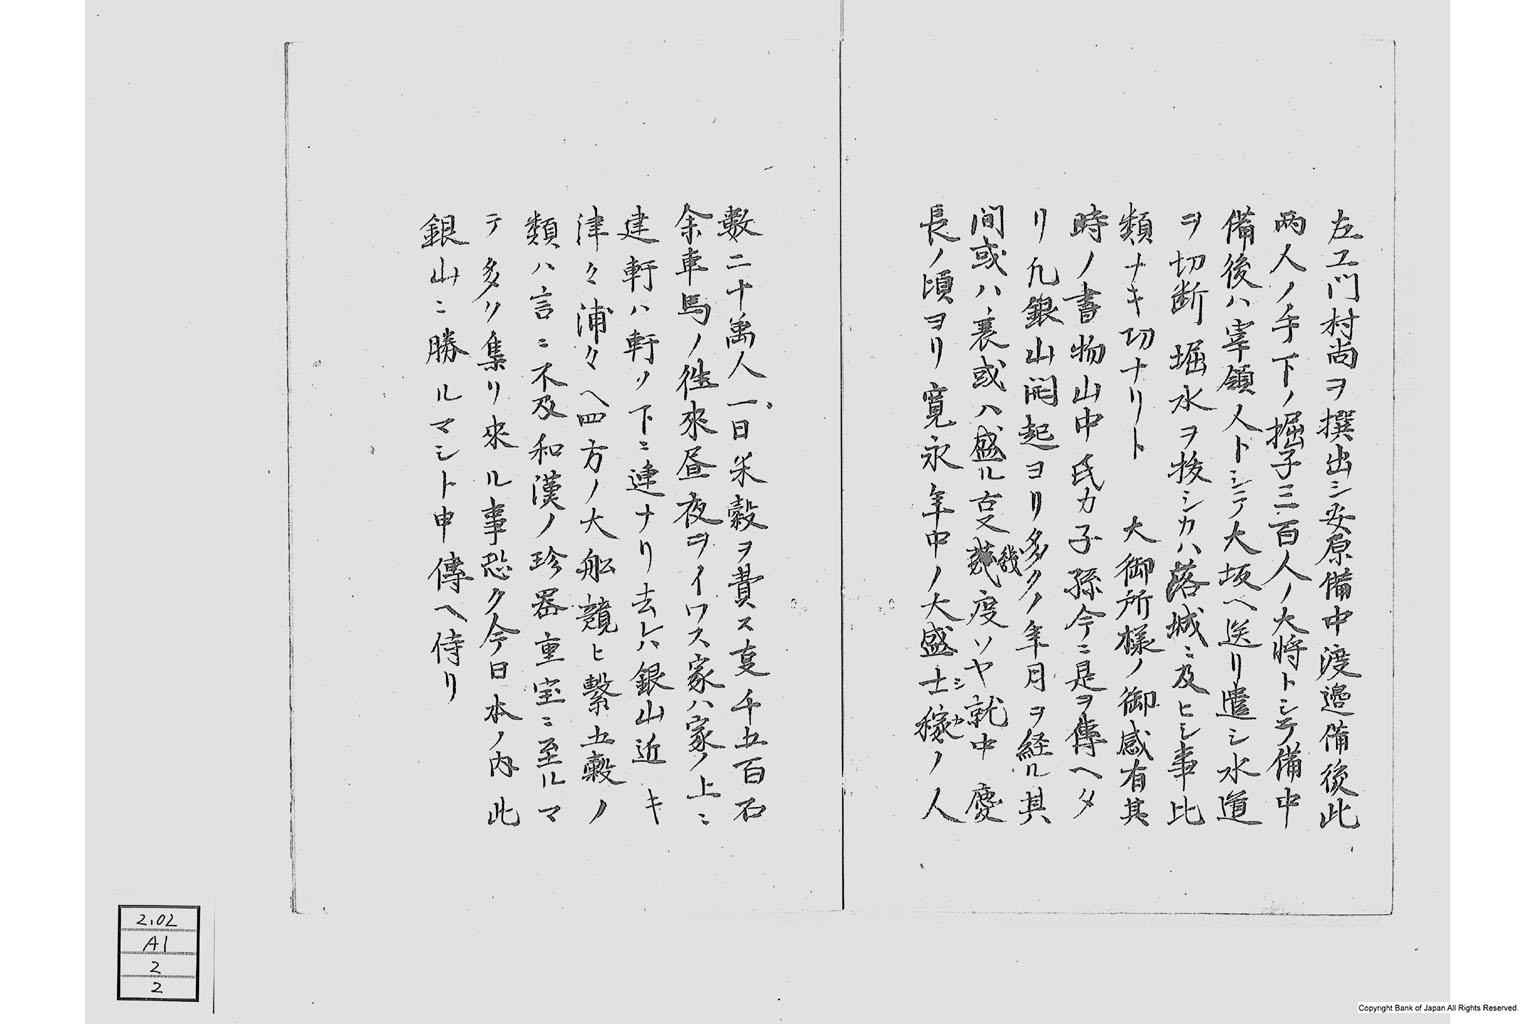 左エ門村尚ヲ撰出シ安原備中渡邉備後此
両人ノ手下ノ掘子三百人ノ大将トシテ備中
備後ハ宰領人トシテ大坂ヘ送リ遣シ水道
ヲ切断堀水ヲ抜シカハ落城ニ及ヒシ事比
類ナキ切ナリト 大御所様ノ御感有其
時ノ書物山中氏カ子孫今ニ是ヲ傳ヘタ
リ凢銀山開起ヨリ多クノ年月ヲ経ル其
間或ハ衰或ハ盛ル叓幾度ソヤ就中慶
幾
長ノ頃ヨリ寛永年中ノ大盛士稼ノ人
シカ
數二十萬人一日米穀ヲ費ス叓千五百石
余車馬ノ徃來昼夜ヲイワス家ハ家ノ上ニ
建軒ハ軒ノ下ニ連ナリ去レハ銀山近キ
津々浦々ヘ四方ノ大舩競ヒ繫五穀ノ
類ハ言ニ不及和漢ノ珍器重宝ニ至ルマ
テ多ク集リ來ル事恐クハ今日本ノ内此
銀山ニ勝ルマシト申傳ヘ侍リ
2.02
A1
2
2
Copyright Bank of Japan All Rights Reserved.